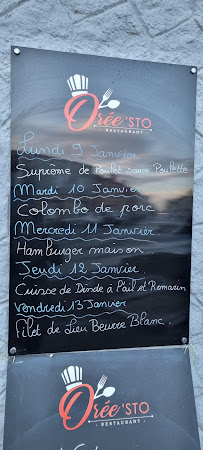 Orée'STO
RESTAURANT
Lundi 9 Janvier
Suprême de Poulet sauce Poulette
Mardi 10 Janvier
Colombo de porc
Mercredi 11 Janvier.
Hamburger maison
Jeudi 12 Janvier.
Cuisse de Dinde à l'ail et Romarin
Vendredi 13 Janvier
Filet de Lieu Beurre Blanc.
Orée'STO
RESTAURANT